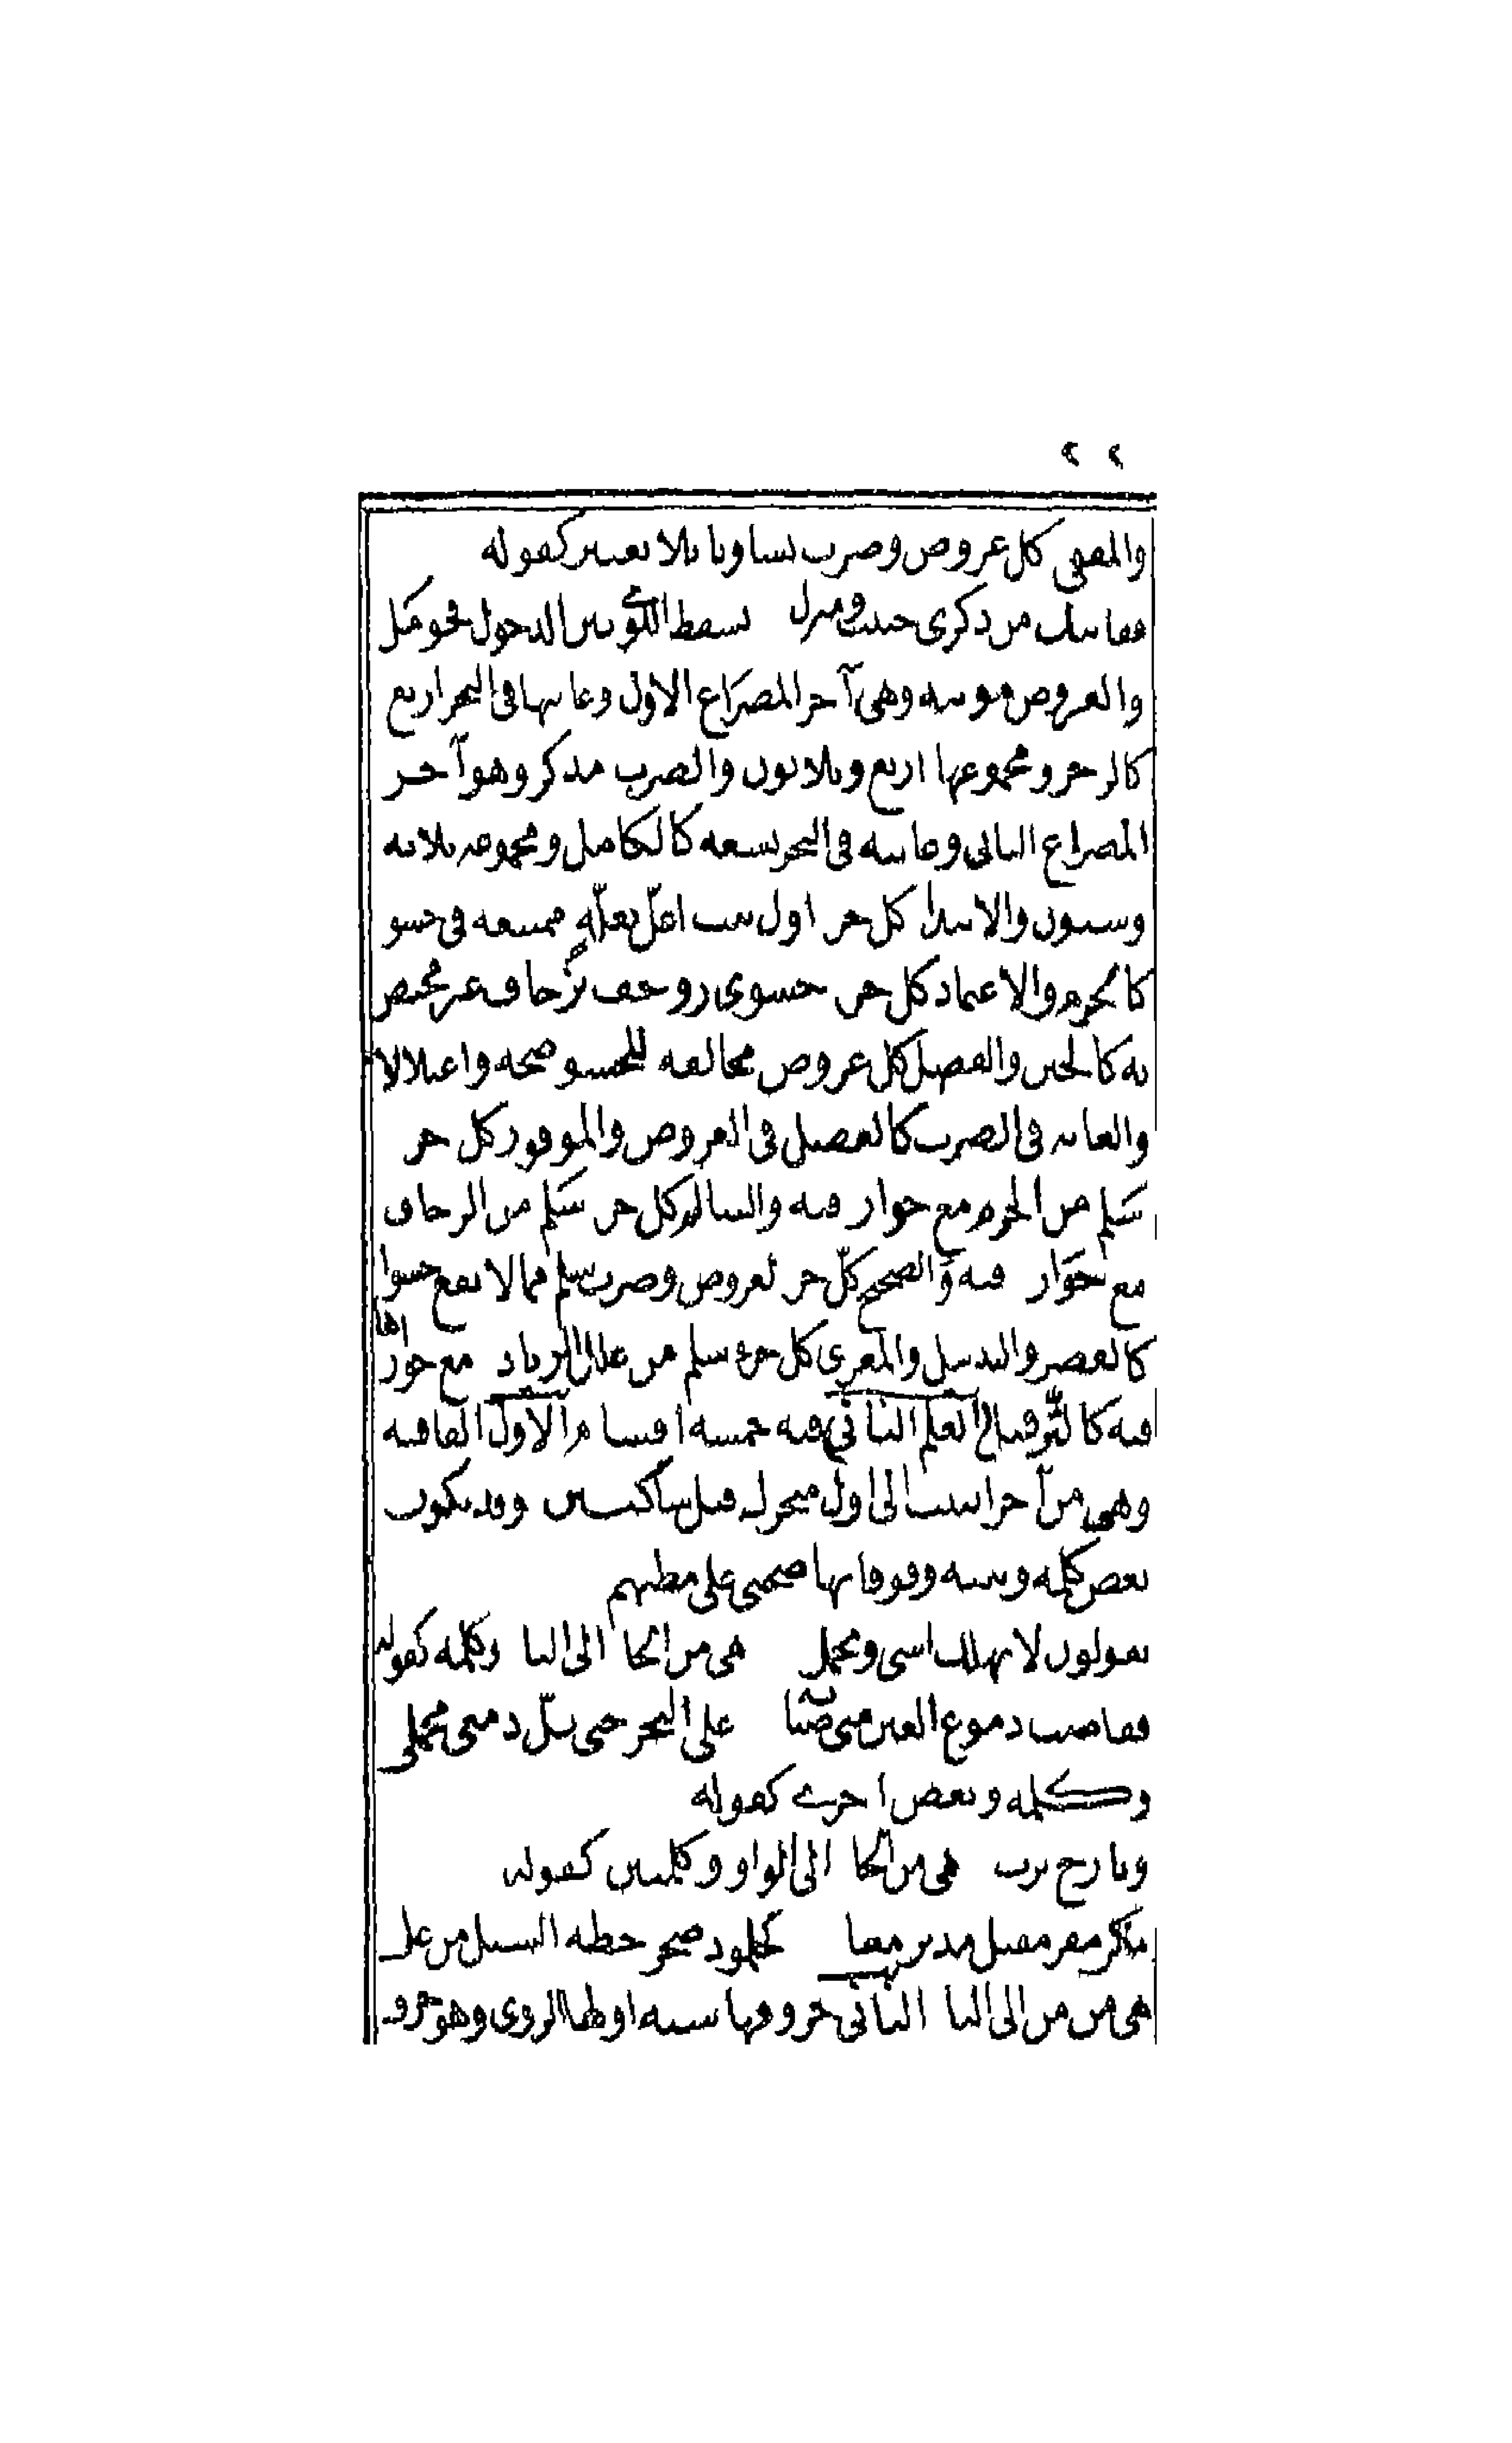 ٢ ٢
والمقفى كل عروض وضرب تساويا بلا تغيير كقوله
قفا نبك من ذكرى حبيب ومنزل بسقط اللوى بين الدخول فحومل
والعروض مؤنثه وهى آخر المصراع الاول وغايتها فى البحر اربع
كالرجز ومجموعها اربع وثلاثون والضرب مذكر وهو آخر
المصراع الثانى وغايته فى البحر تسعه كالكامل ومجموعه ثلاثه
وستون والابتدا كل جز اول بيت اعلّ بعلّة ممتنعه فى حشو
كالخرم والاعتماد كل جز حشوى زوحف بزحاف غير مختص
به كالخبن والفصل كل عروض مخالفه للحشو صحه واعتلالا
والغايه فى الضرب كالفصل فى العروض والموفور كل جز
سَلِم من الخرم مع جواز فيه والسالم كل جز سَلِم من الزحاف
مع جَوَاز فيه وَالصحيح كلّ جز لعروض وضرب سلم مما لا يقع حشوا
كالقصر والتذييل والمعرى كل جزء سلم من علل الزياد مع جواز اها
فيه كالترفيل العلم الثانى فيه خمسه اقسام الاول القافيه
وهى من آخر البيت الى اول متحرك قبل ساكنين وقد تكون
بعض كلمه وبيته وقوفا بها صحبى على مطيهم
يقولون لا تهلك اسى وتجمل هى من الحا الى اليا وكلمه كقوله
ففاضت دموع العين منى صبابة على النحر حتى بلّ دمعى محملى
وكلمه وبعض اخرى كقوله
وبارح ترب هى من الحا الى الواو وكلمتين كقوله
مكر مفر مقبل مدبر معا كجلمود صخر حطه السيل من عل
هى من من الى اليا الثانى حروفها سته اولها الروى وهو حرف